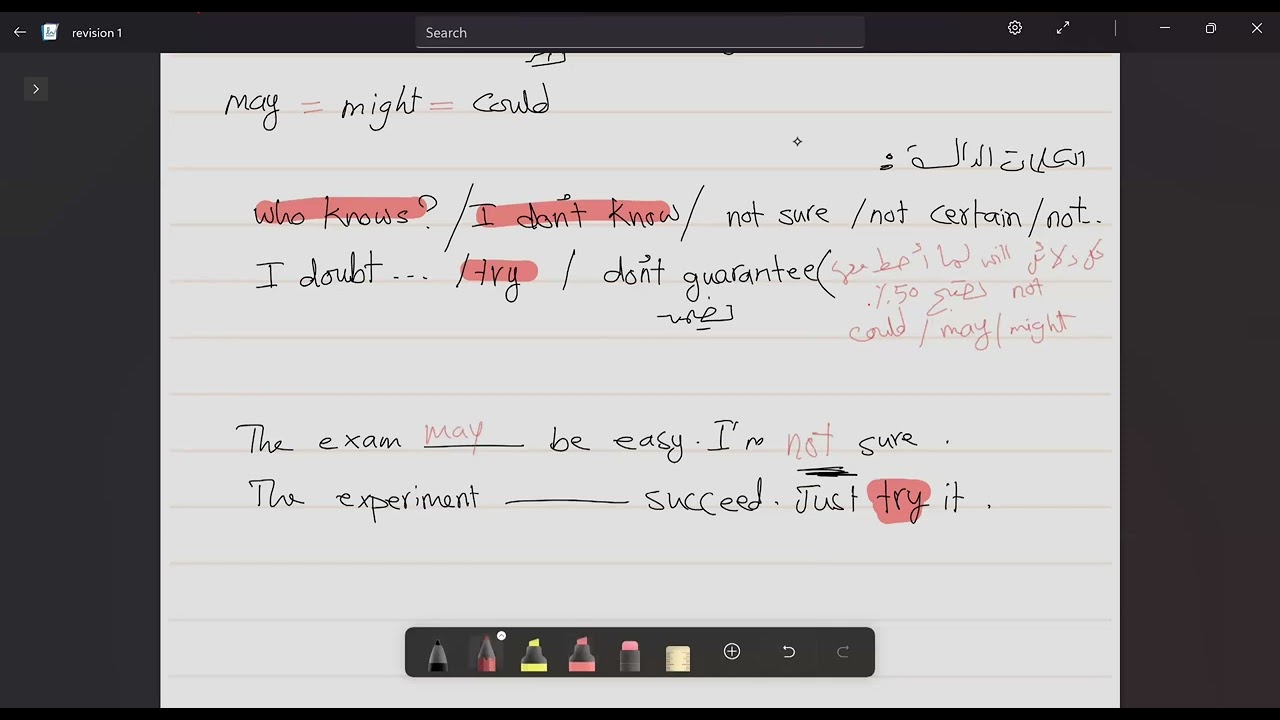 revision 1
Search
may = might = could
الكلمات الدالة :
who knows? / I don't know / not sure / not certain / not.
I doubt ... / try / don't guarantee (
كل دلائل will لما أحط
not تصبح 50٪.
could / may / might
The exam may be easy. I'm not sure.
The experiment ______ succeed. Just try it.